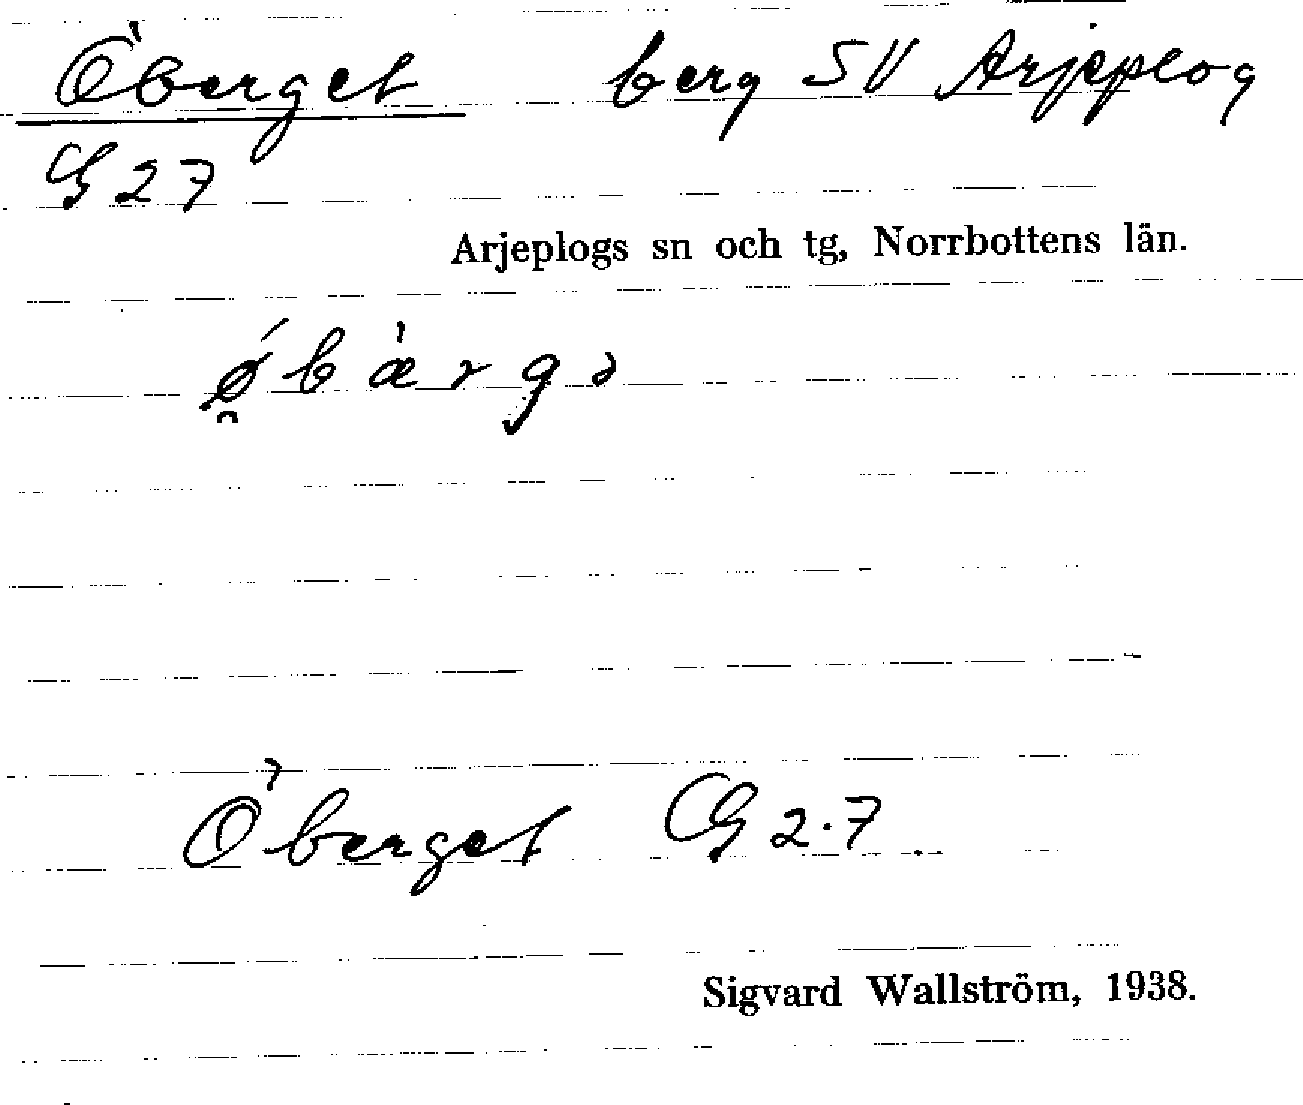 Öberget berg SV Arjeplog
G 27
Arjeplogs sn och tg, Norrbottens län.
ǿbæ̀rgə
Öberget G 2.7
Sigvard Wallström, 1938.